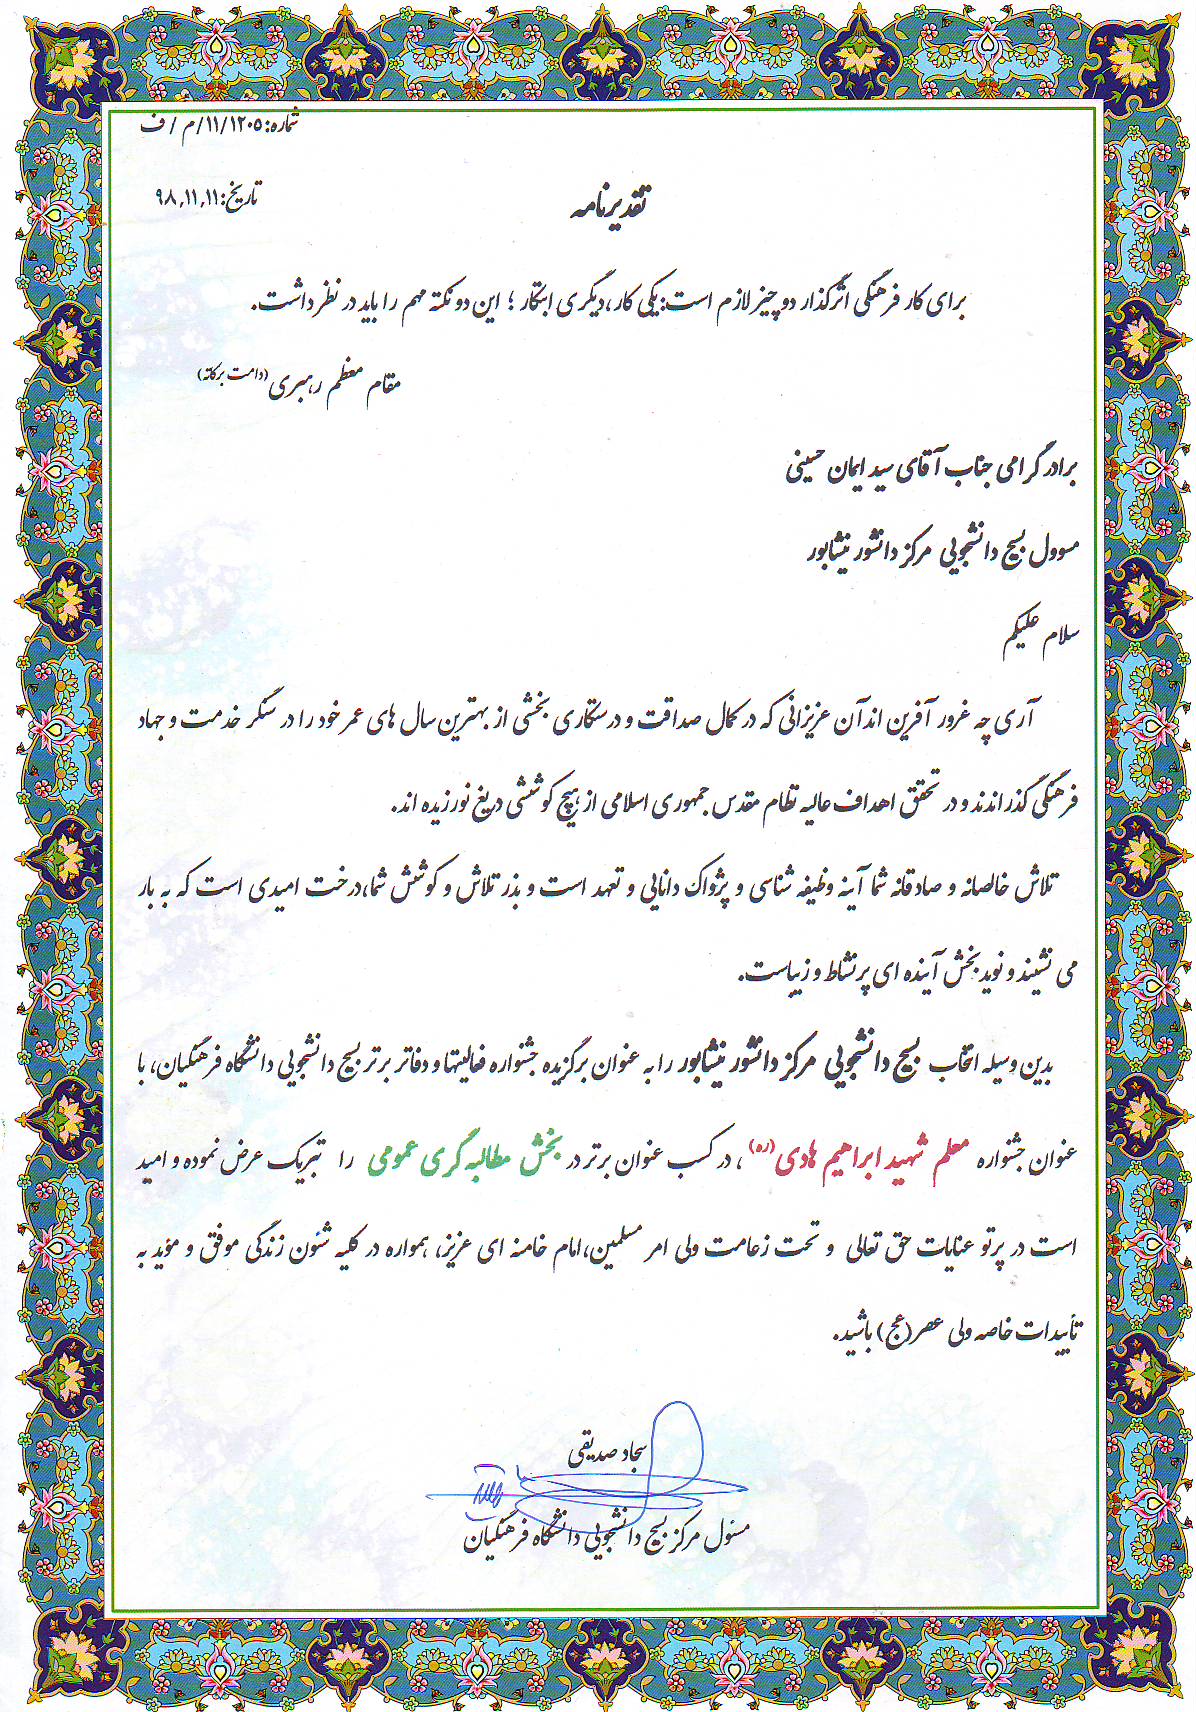 شماره: ۱۱/۱۲۰۵/م/ف
تاریخ: ۹۸,۱۱,۱۱
تقدیرنامه
برای کار فرهنگی اثرگذار دو چیز لازم است: یکی کار، دیگری ابتکار ؛ این دو نکته مهم را باید در نظر داشت.
مقام معظم رهبری (دامت برکاته)
برادر گرامی جناب آقای سید ایمان حسینی
مسوول بسیج دانشجویی مرکز دانشور نیشابور
سلام علیکم
آری چه غرور آفرین اند آن عزیزانی که در کمال صداقت و درستکاری بخشی از بهترین سال های عمر خود را در سنگر خدمت و جهاد
فرهنگی گذراندند و در تحقق اهداف عالیه نظام مقدس جمهوری اسلامی از هیچ کوششی دریغ نورزیده اند.
تلاش خالصانه و صادقانه شما آینه وظیفه شناسی و پژواک دانایی و تعهد است و بذر تلاش و کوشش شما، درخت امیدی است که به بار
می نشیند و نوید بخش آینده ای پر نشاط و زیباست.
بدین وسیله انتخاب بسیج دانشجویی مرکز دانشور نیشابور را به عنوان برگزیده جشنواره فعالیتها و دفاتر برتر بسیج دانشجویی دانشگاه فرهنگیان، با
عنوان جشنواره معلم شهید ابراهیم هادی (ره) ، در کسب عنوان برتر در بخش مطالبه گری عمومی را تبریک عرض نموده و امید
است در پرتو عنایات حق تعالی و تحت زعامت ولی امر مسلمین، امام خامنه ای عزیز، همواره در کلیه شئون زندگی موفق و مؤید به
تأییدات خاصه ولی عصر (عج) باشید.
سجاد صدیقی
مسئول مرکز بسیج دانشجویی دانشگاه فرهنگیان